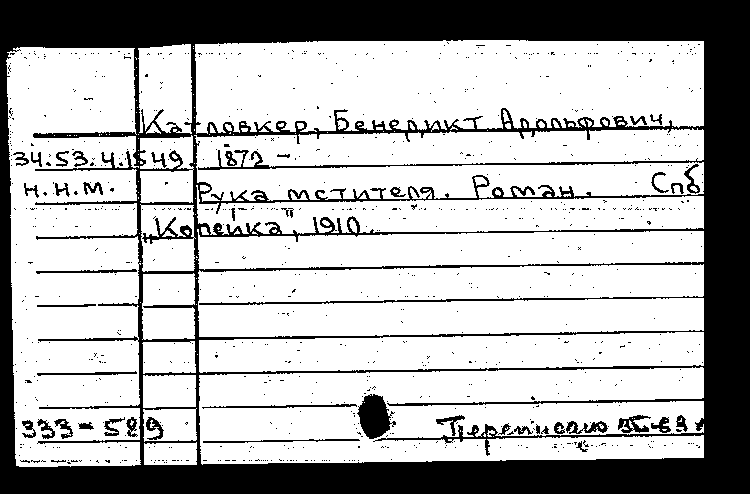 Катловкер, Бенедикт Адольфович,
34.53.4.1549. 1872 –
н.н.м. Рука мстителя. Роман. Спб
„Копейка", 1910.
333-589 Переписано